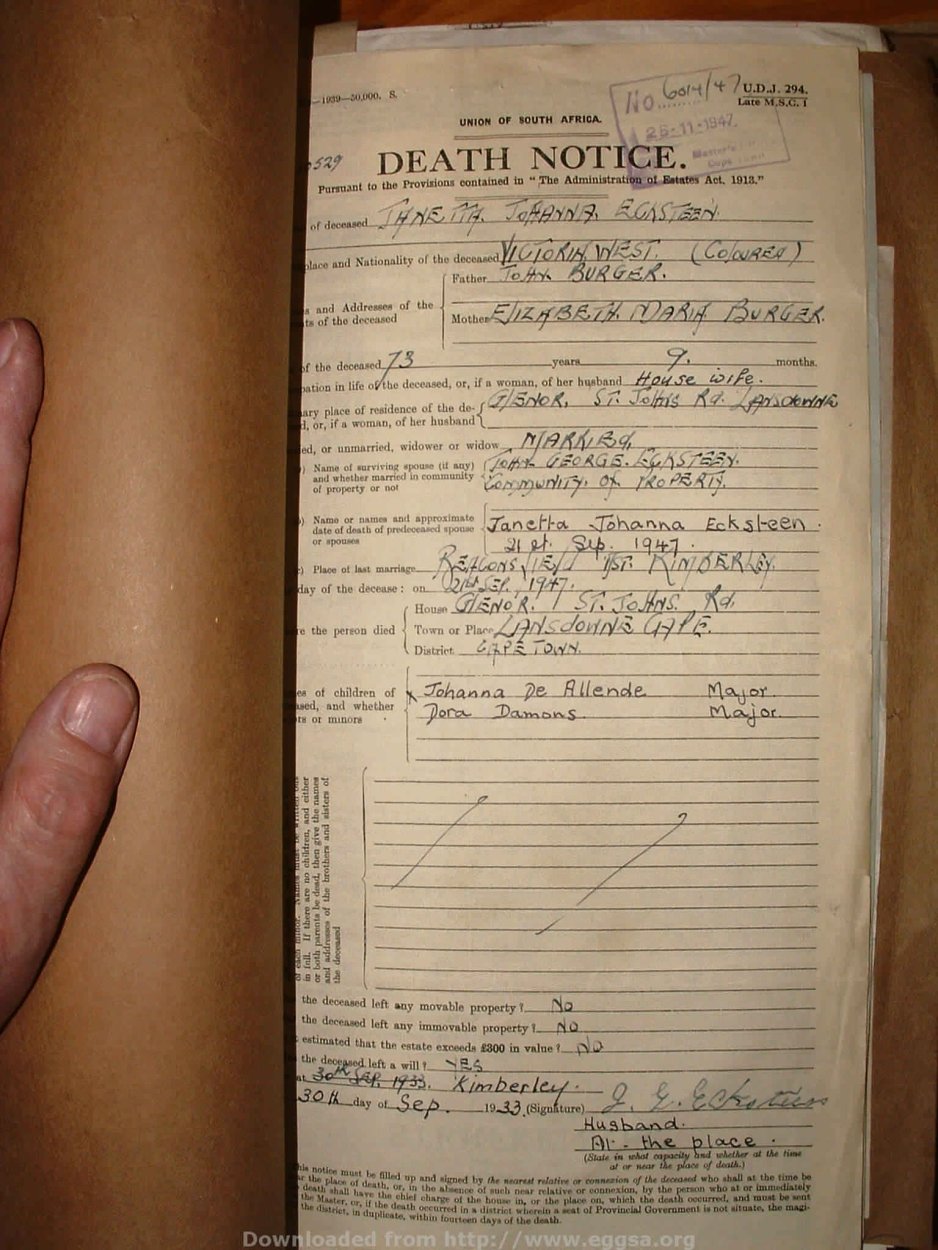 —1939—50,000. S.
No. 6014/47
U.D.J. 294.
Late M.S.C. 1
UNION OF SOUTH AFRICA.
26-11-1947
529
DEATH NOTICE.
Pursuant to the Provisions contained in "The Administration of Estates Act, 1913."
of deceased JANETTA. JOHANNA. ECKSTEEN.
place and Nationality of the deceased VICTORIA. WEST. (COLOURED)
Father JOHN. BURGER.
s and Addresses of the
ts of the deceased
Mother ELIZABETH. MARIA BURGER.
of the deceased 73 years 9. months.
pation in life of the deceased, or, if a woman, of her husband House wife.
ary place of residence of the de- GLENOR, ST. JOHNS Rd. LANSDOWNE
d, or, if a woman, of her husband
ed, or unmarried, widower or widow MARRIED,
) Name of surviving spouse (if any) JOHN. GEORGE. ECKSTEEN.
and whether married in community COMMUNITY. OF PROPERTY.
of property or not
) Name or names and approximate Janetta Johanna Ecksteen.
date of death of predeceased spouse
or spouses 21st. Sep. 1947.
) Place of last marriage BEACONSFIELD KIMBERLEY.
day of the decease: on 21st SEP. 1947.
House GLENOR. ST. JOHNS. Rd.
re the person died Town or Place LANSDOWNE CAPE.
District CAPE TOWN.
es of children of x Johanna De Allende Major.
ased, and whether Dora Damons. Major.
rs or minors
of each minor. Names must be written out
in full. If there are no children, and either
or both parents be dead, then give the names
and addresses of the brothers and sisters of
the deceased
the deceased left any movable property? No
the deceased left any immovable property? No
estimated that the estate exceeds £300 in value? No
the deceased left a will? YES
at 30th Sep. 1933. Kimberley.
30th day of Sep. 1933 (Signature) J. G. Ecksteen
Husband.
At - the place.
(State in what capacity and whether at the time
or near the place of death.)
his notice must be filled up and signed by the nearest relative or connexion of the deceased who shall at the time be
or the place of death, or, in the absence of such near relative or connexion, by the person who at or immediately
death shall have the chief charge of the house in, or the place on, which the death occurred, and must be sent
the Master, or, if the death occurred in a district wherein a seat of Provincial Government is not situate, the magi-
the district, in duplicate, within fourteen days of the death.
Downloaded from http://www.eggsa.org